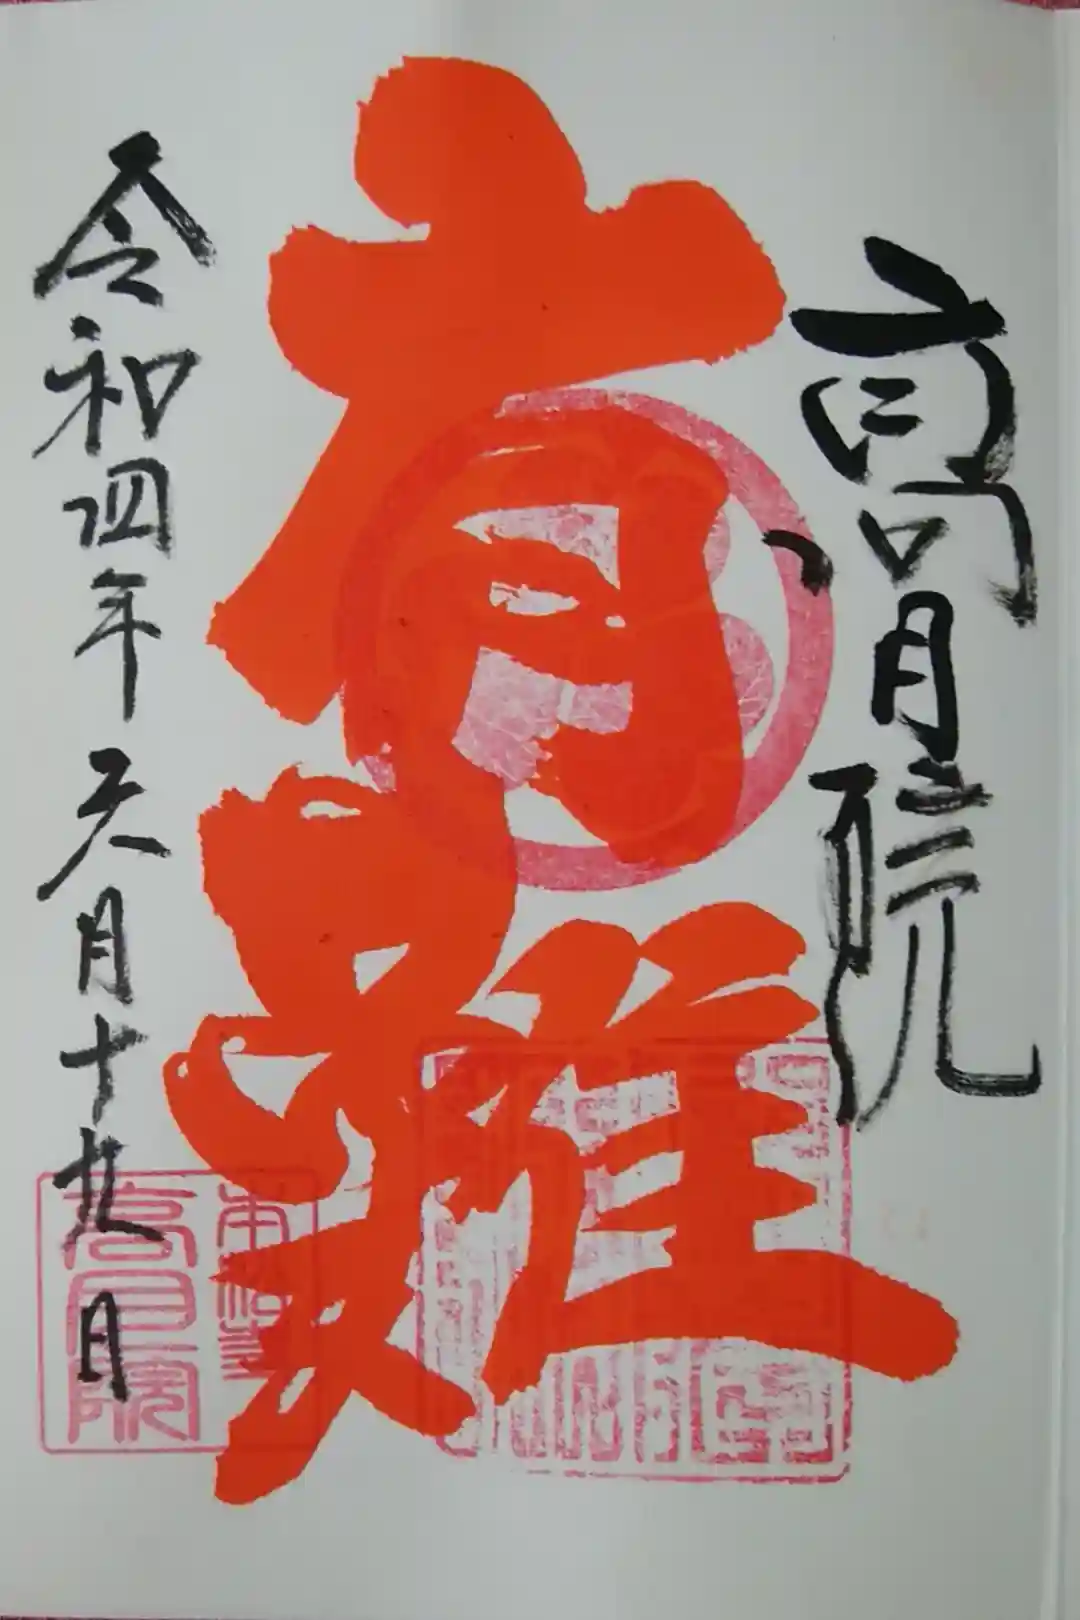 高月院
有難
令和四年六月十九日
高月院